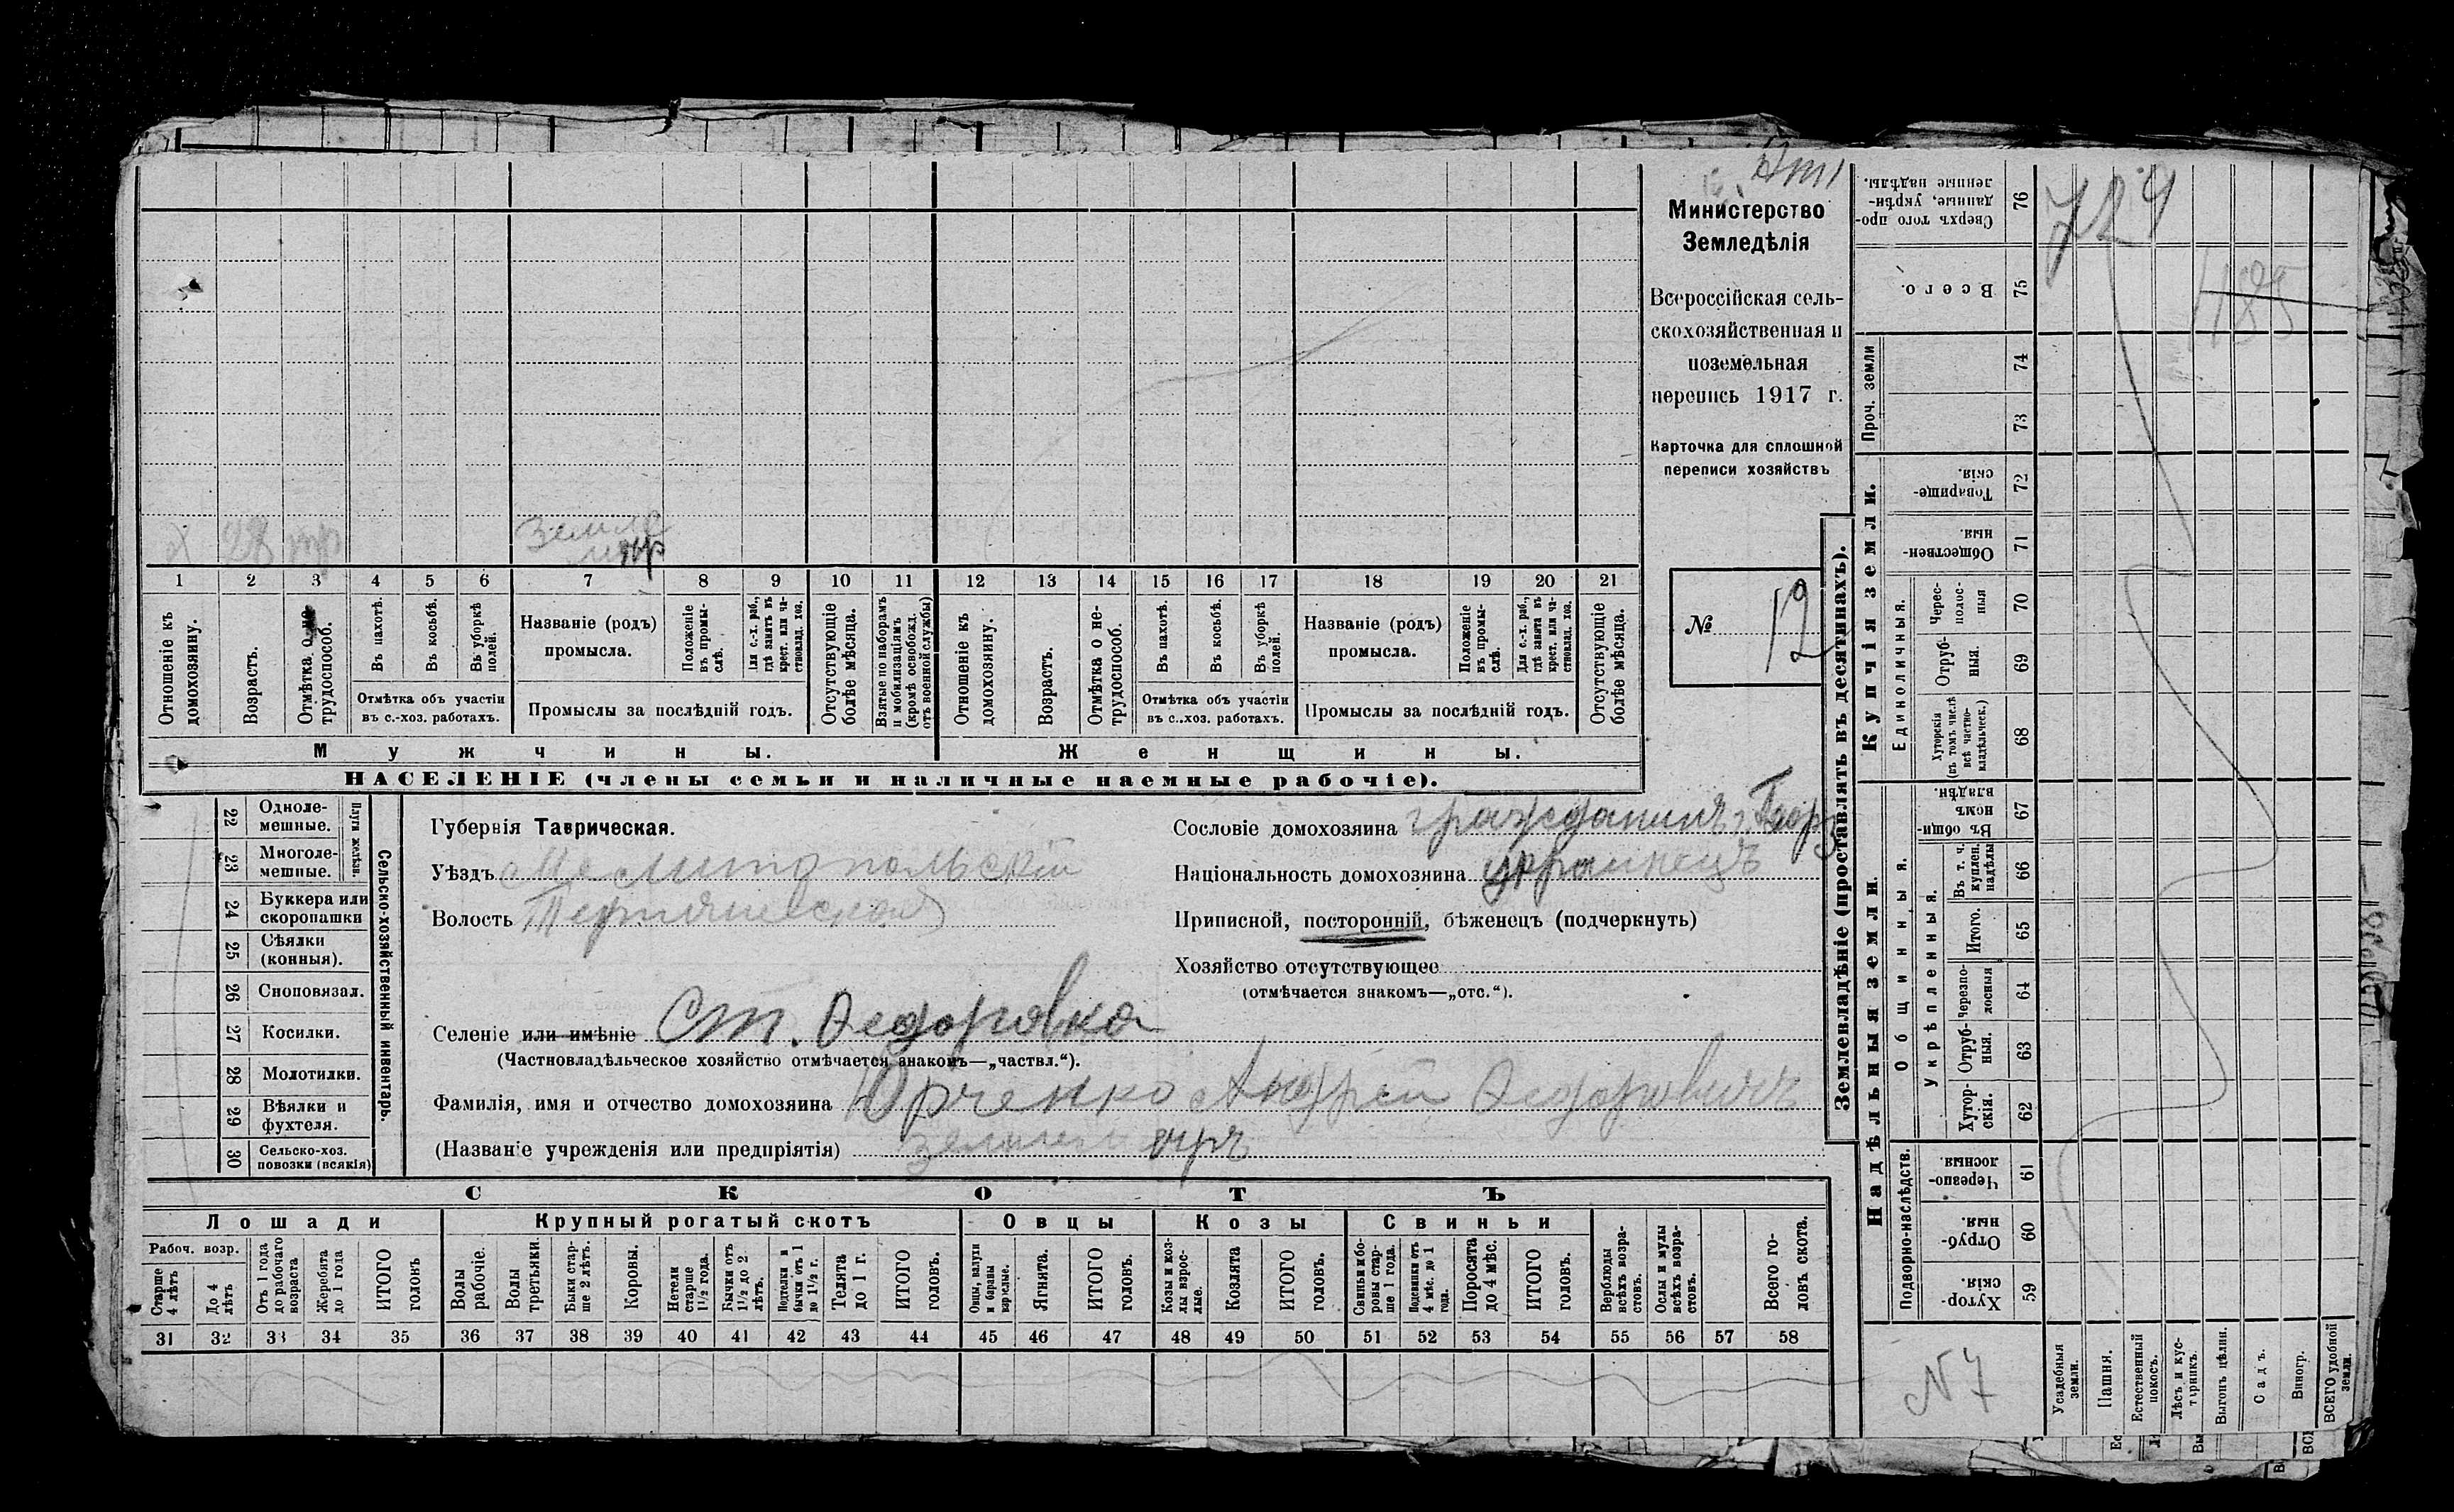 Министерство
Земледѣлія
Всероссійская сель-
скохозяйственная и
поземельная
перепись 1917 г.
Карточка для сплошной
переписи хозяйствъ
№ 12
1 2 3 4 5 6 7 8 9 10 11 12 13 14 15 16 17 18 19 20 21
Отношеніе къ домохозяину.
Возрастъ.
Отмѣтка о не-трудоспособ.
Въ пахотѣ.
Въ косьбѣ.
Въ уборкѣ полей.
Отмѣтка объ участіи
въ с.-хоз. работахъ.
Названіе (родъ)
промысла.
Положеніе въ промы-слѣ.
Для с.-х. раб., гдѣ занятъ въ крест. или ча-ствовлад. хоз.
Промыслы за послѣдній годъ.
Отсутствующіе болѣе мѣсяца.
Взятые по наборамъ и мобилизаціямъ (кромѣ освобожд. отъ военной службы)
Отношеніе къ домохозяину.
Возрастъ.
Отмѣтка о не-трудоспособ.
Въ пахотѣ.
Въ косьбѣ.
Въ уборкѣ полей.
Отмѣтка объ участіи
въ с.-хоз. работахъ.
Названіе (родъ)
промысла.
Положеніе въ промы-слѣ.
Для с.-х. раб., гдѣ занята въ крест. или ча-ствовлад. хоз.
Промыслы за послѣдній годъ.
Отсутствующіе болѣе мѣсяца.
Мужчины. Женщины.
НАСЕЛЕНІЕ (члены семьи и наличные наемные рабочіе).
22 Одноле-мешные.
23 Многоле-мешные.
Плуги желѣзн.
24 Буккера или скоропашки
25 Сѣялки (конныя).
26 Сноповязал.
27 Косилки.
28 Молотилки.
29 Вѣялки и фухтеля.
30 Сельско-хоз. повозки (всякія)
Сельско-хозяйственный инвентарь.
Губернія Таврическая.
Уѣздъ Мелитопольскій
Волость
Сословіе домохозяина гражданинъ г.
Національность домохозяина украинецъ
Приписной, посторонній, бѣженецъ (подчеркнуть)
Хозяйство отсутствующее
(отмѣчается знакомъ—„отс.“).
Селеніе или имѣніе Ст. Ѳедоровка
(Частновладѣльческое хозяйство отмѣчается знакомъ—„частвл.“).
Фамилія, имя и отчество домохозяина Юрченко Андрей Ѳедоровичъ
(Названіе учрежденія или предпріятія)
СКОТЪ
Лошади Крупный рогатый скотъ Овцы Козы Свиньи
Рабоч. возр.
Старше 4 лѣтъ
До 4 лѣтъ
Отъ 1 года до рабочаго возраста
Жеребята до 1 года
ИТОГО головъ
Волы рабочіе.
Волы третьяки.
Быки стар-ше 2 лѣтъ.
Коровы.
Нетели старше 1½ года.
Бычки отъ 1½ до 2 лѣтъ.
Подтелки и бычки отъ 1 до 1½ г.
Телята до 1 г.
ИТОГО головъ.
Овцы, валухи и бараны взрослые.
Ягнята.
ИТОГО головъ.
Козы и коз-лы взрос-лые.
Козлята
ИТОГО головъ.
Свиньи и бо-ровы стар-ше 1 года.
Подсвинки отъ 4 мѣс. до 1 года.
Поросята до 4 мѣс.
ИТОГО головъ.
Верблюды всѣхъ возра-стовъ.
Ослы и мулы всѣхъ возра-стовъ.
Всего го-ловъ скота.
31 32 33 34 35 36 37 38 39 40 41 42 43 44 45 46 47 48 49 50 51 52 53 54 55 56 57 58
Землевладѣніе (проставлять въ десятинахъ).
Надѣльныя земли.
Купчія земли.
Проч. земли
Подворно-наслѣдств.
Общинныя.
Укрѣпленныя.
Единоличныя.
Сверхъ того про-данные, укрѣп-ленные надѣлы. 76
Всего. 75
74
73
Товарище-скія. 72
Обществен-ныя 71
Черес-полос-ныя 70
Отруб-ныя. 69
Хуторскія (въ томъ числѣ всѣ частно-владѣльческ.) 68
Въ общин-номъ владѣн. 67
Въ т. ч. куплен. надѣлы 66
Итого. 65
Черезпо-лосныя 64
Отруб-ныя. 63
Хутор-скія. 62
Черезпо-лосныя 61
Отруб-ныя. 60
Хутор-скія. 59
Усадебныя земли.
Пашня.
Естественный покосъ.
Лѣсъ и кус-тарникъ.
Выгонъ цѣлин.
Садъ.
Виногр.
ВСЕГО удобной земли.
724
N7